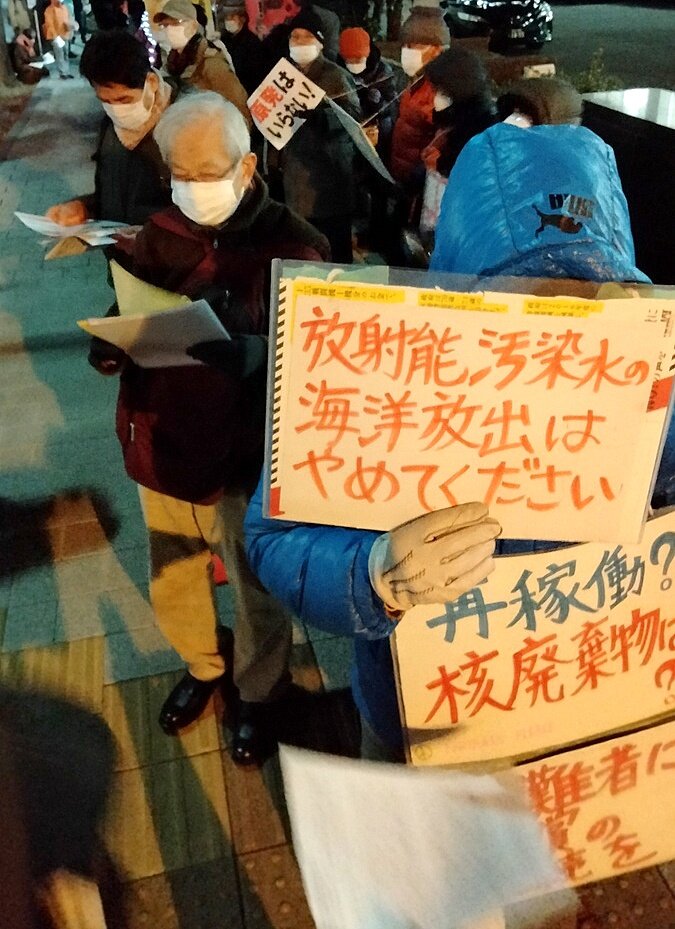 原発は
いらない!
放射能汚染水の
海洋放出は
やめてください
再稼働?
核廃棄物は
?
難者に
の
を